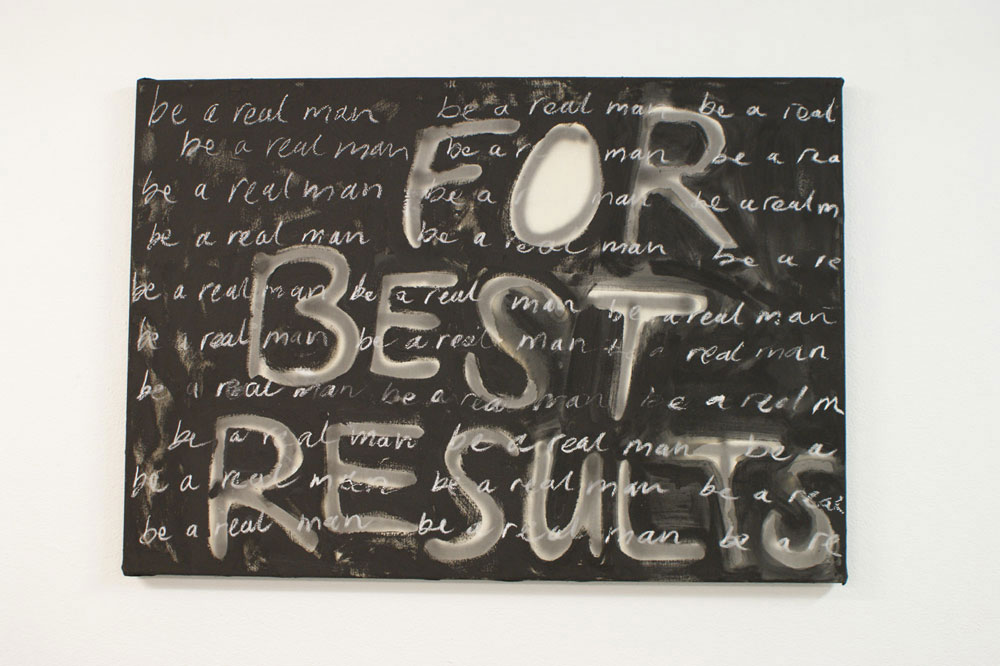 be a real man be a real man be a real
be a real man be a r man be a rea
FOR
be a real man be a man be a real m
be a real man be a real man be a re
be a real man be a real man be a real man
BEST
be a real man be a real man be a real man
be a real man be a real man be a real m
be a real man be a real man be a
RESULTS
be a real man be a real man be a real
be a real man be a real man be a re